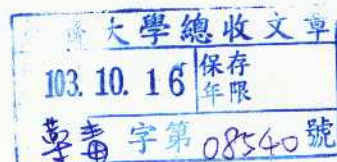 大學總收文章
103. 10. 16 保存年限
字第08540號